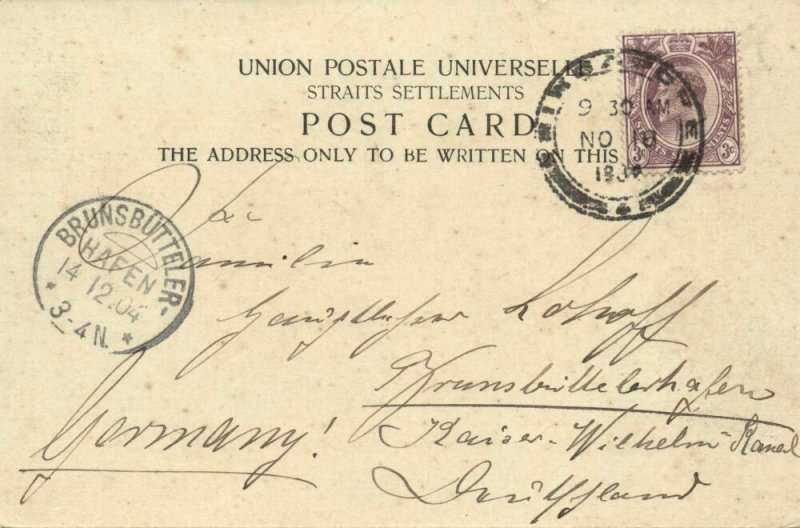 UNION POSTALE UNIVERSELLE
STRAITS SETTLEMENTS
POST CARD
THE ADDRESS ONLY TO BE WRITTEN ON THIS
9 30 AM
NO 18
3c 3c
BRUNSBÜTTELER-
HAFEN
14.12.04
* 3-4N. *
Familie
Lohoff
Brunsbüttelerhafen
Germany!
Kaiser-Wilhelm-Kanal
Deutschland